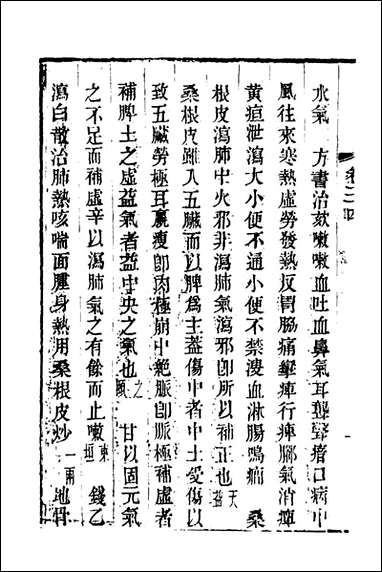 水氣 方書治欬嗽嗽血吐血鼻氣耳聾聤瘡口病中
風往來寒熱虛勞發熱反胃脇痛攣痺行痺腳氣消癉
黃疸泄瀉大小便不通小便不禁溲血淋腸鳴疝 桑
根皮瀉肺中火邪非瀉肺氣瀉邪卽所以補正也 天益
桑根皮雖入五臟而以脾爲主益傷中者中土受傷以
致五臟勞極耳羸瘦卽肉極崩中絕脈卽脈極補虛者
補脾土之虛益氣者益中央之氣也 之頤 甘以固元氣
之不足而補虛辛以瀉肺氣之有餘而止嗽 東垣 錢乙
瀉白散治肺熱咳喘面腫身熱用桑根皮炒 一兩 地骨
卷二四